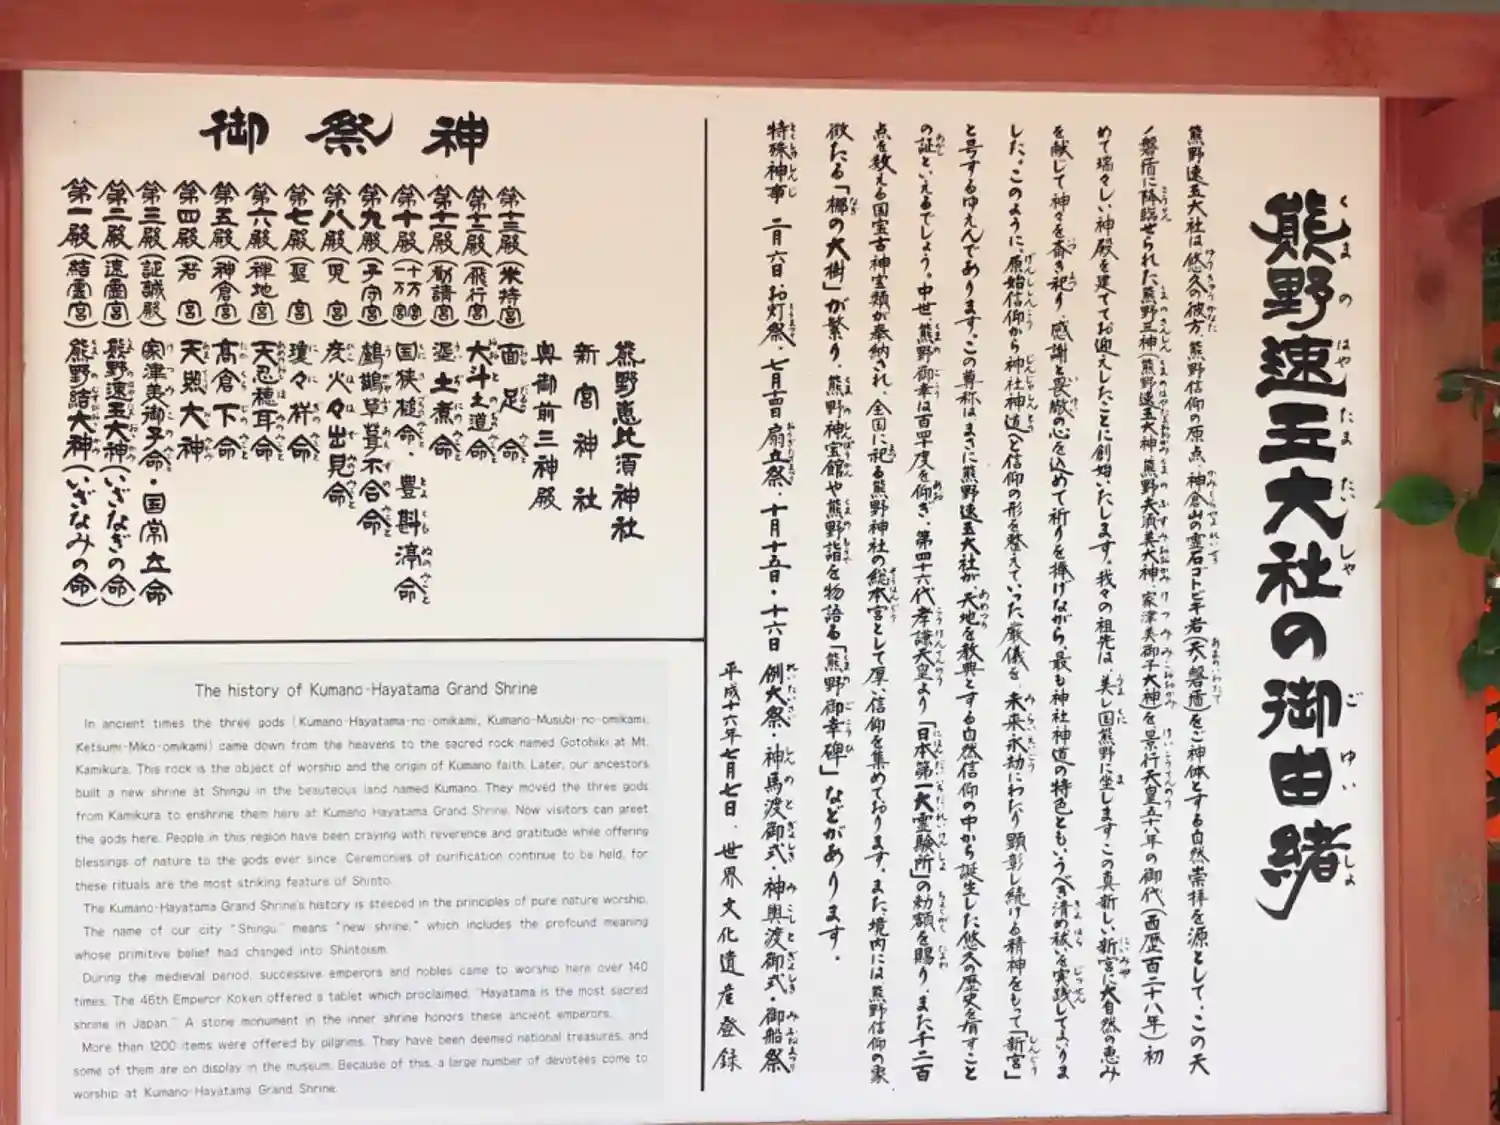 熊野速玉大社の御由緒
熊野速玉大社は悠久の彼方、熊野信仰の原点、神倉山の霊石ゴトビキ岩(天ノ磐盾)をご神体とする自然崇拝を源として、この天
ノ磐盾に降臨せられた熊野三神(熊野速玉大神・熊野夫須美大神・家津美御子大神)を景行天皇五十八年の御代(西歴百二十八年)初
めて瑞々しい神殿を建ててお迎えしたことに創始いたします。我々の祖先は、美し国熊野に坐しますこの真新しい新宮に大自然の恵み
を献じて神々を斎き祀り、感謝と畏敬の心を込めて祈りを捧げながら、最も神社神道の特色ともいうべき清め祓を実践してまいりま
した。このように、原始信仰から神社神道へと信仰の形を整えていった厳儀を、未来永劫にわたり顕彰し続ける精神をもって「新宮」
と号するゆえんであります。この尊称はまさに熊野速玉大社が、天地を教典とする自然信仰の中から誕生した悠久の歴史を有すこと
の証といえるでしょう。中世、熊野御幸は百四十度を仰ぎ、第四十六代孝謙天皇より「日本第一大霊験所」の勅額を賜り、また千二百
点を数える国宝古神宝類が奉納され、全国に祀る熊野神社の総本宮として厚い信仰を集めております。また、境内には熊野信仰の象
徴たる「梛の大樹」が繁り、熊野神宝館や熊野詣を物語る「熊野御幸碑」などがあります。
特殊神事 二月六日お灯祭・七月十四日扇立祭・十月十五日・十六日 例大祭・神馬渡御式・神輿渡御式・御船祭
平成十六年七月七日、世界文化遺産登録
御祭神
第一殿(結霊宮)熊野結大神(いざなみの命)
第二殿(速霊宮)熊野速玉大神(いざなぎの命)
第三殿(証誠殿)家津美御子命・国常立命
第四殿(若宮)天照大神
第五殿(神倉宮)高倉下命
第六殿(禅地宮)天忍穂耳命
第七殿(聖宮)瓊々杵命
第八殿(児宮)彦火々出見命
第九殿(子守宮)鸕鷀草葺不合命
第十殿(一万宮・十万宮)国狭槌命・豊斟渟命
第十一殿(勧請宮)泥土煮命
第十二殿(飛行宮)大斗之道命
第十三殿(米持宮)面足命
奥御前三神殿
新宮神社
熊野恵比須神社
The history of Kumano-Hayatama Grand Shrine
In ancient times the three gods (Kumano-Hayatama-no-omikami, Kumano-Musubi-no-omikami,
Ketsumi-Miko-omikami) came down from the heavens to the sacred rock named Gotobiki at Mt.
Kamikura. This rock is the object of worship and the origin of Kumano faith. Later, our ancestors
built a new shrine at Shingu in the beauteous land named Kumano. They moved the three gods
from Kamikura to enshrine them here at Kumano Hayatama Grand Shrine. Now visitors can greet
the gods here. People in this region have been praying with reverence and gratitude while offering
blessings of nature to the gods ever since. Ceremonies of purification continue to be held, for
these rituals are the most striking feature of Shinto.
The Kumano-Hayatama Grand Shrine's history is steeped in the principles of pure nature worship.
The name of our city "Shingu," means "new shrine," which includes the profound meaning
whose primitive belief had changed into Shintoism.
During the medieval period, successive emperors and nobles came to worship here over 140
times. The 46th Emperor Koken offered a tablet which proclaimed, "Hayatama is the most sacred
shrine in Japan." A stone monument in the inner shrine honors these ancient emperors.
More than 1200 items were offered by pilgrims. They have been deemed national treasures, and
some of them are on display in the museum. Because of this, a large number of devotees come to
worship at Kumano-Hayatama Grand Shrine.